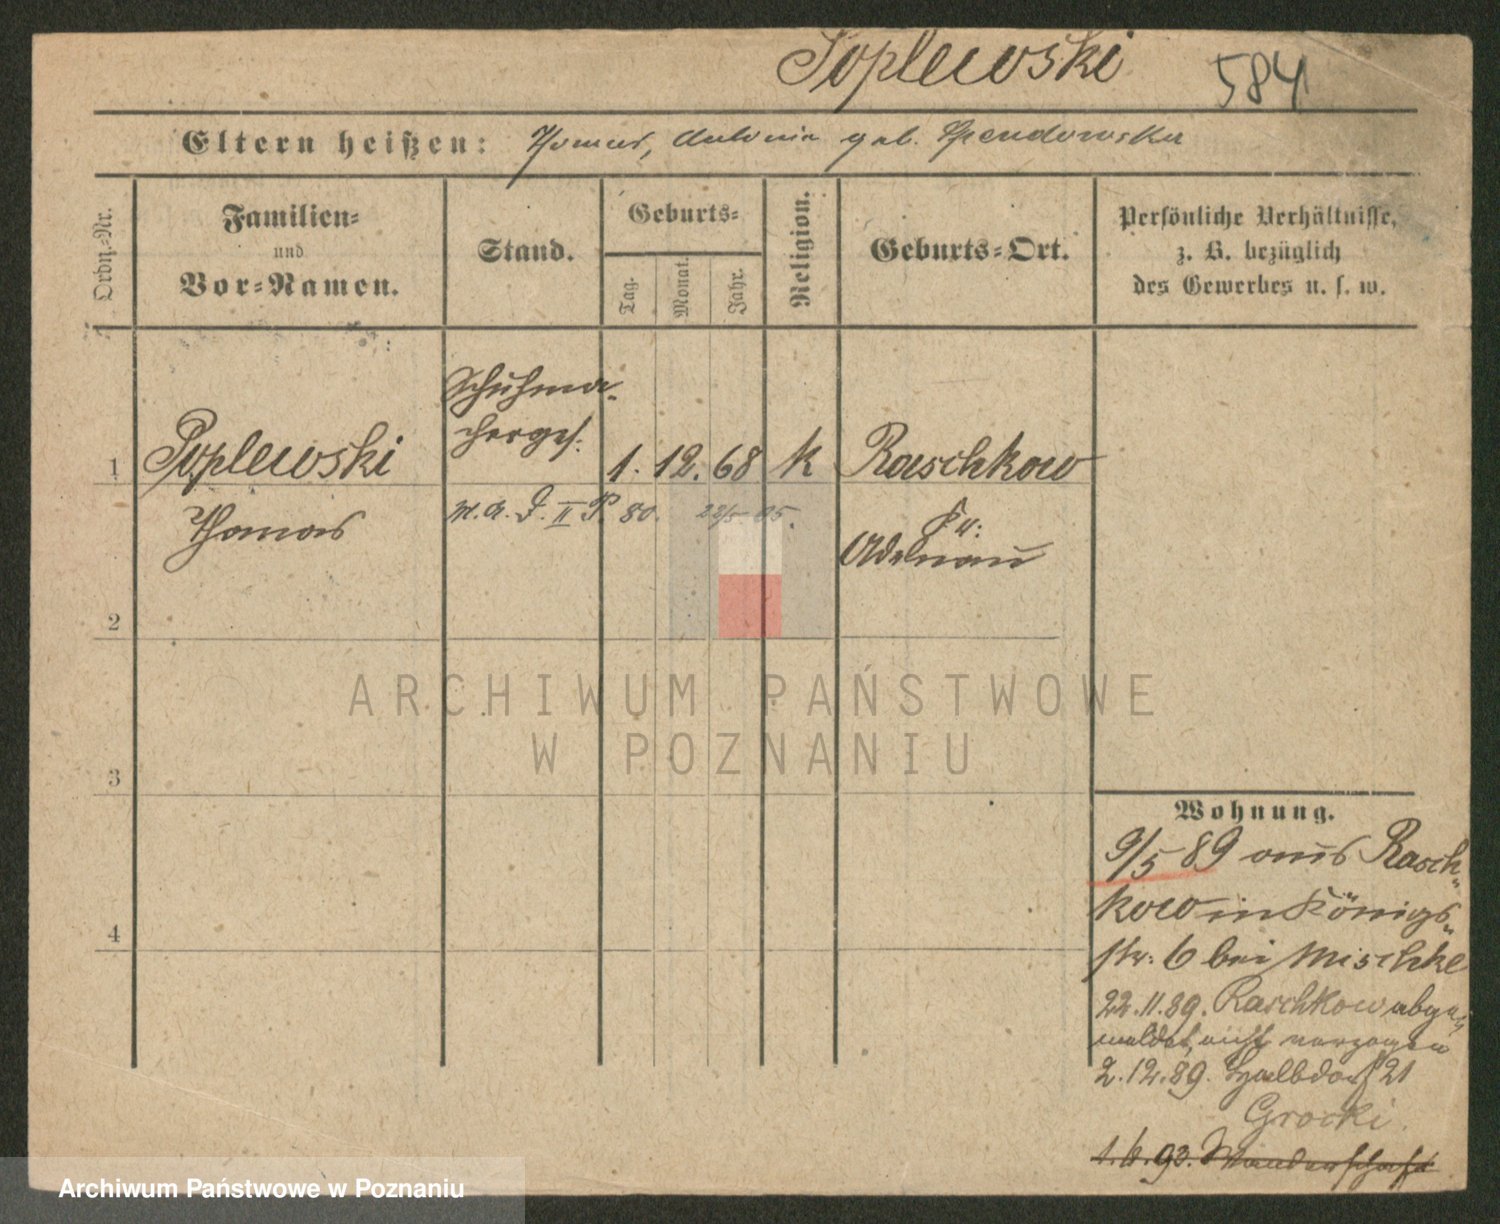 Poplewski 584
Eltern heißen: Thomas, Antonie geb. Spendowska
Ordn.-Nr.
Familien-
und
Vor-Namen.
Stand.
Geburts-
Tag.
Monat.
Jahr.
Religion.
Geburts-Ort.
Persönliche Verhältnisse,
z. B. bezüglich
des Gewerbes u. s. w.
Schuhma-
cherges.
1 Poplewski 1. 12. 68 k Raschkow
Thomas
M. A. J. II P. 80. 22/5 05.
Kr.
Adelnau
2
ARCHIWUM PAŃSTWOWE
W POZNANIU
3
4
Wohnung.
9/5 89 aus Rasch-
kow in Königs-
str. 6 bei Mischke
22.11.89. Raschkow abge-
meldet, nicht verzogen
2.12.89. Halbdorf 21
Grocki.
1.6.93. Wanderschaft
Archiwum Państwowe w Poznaniu